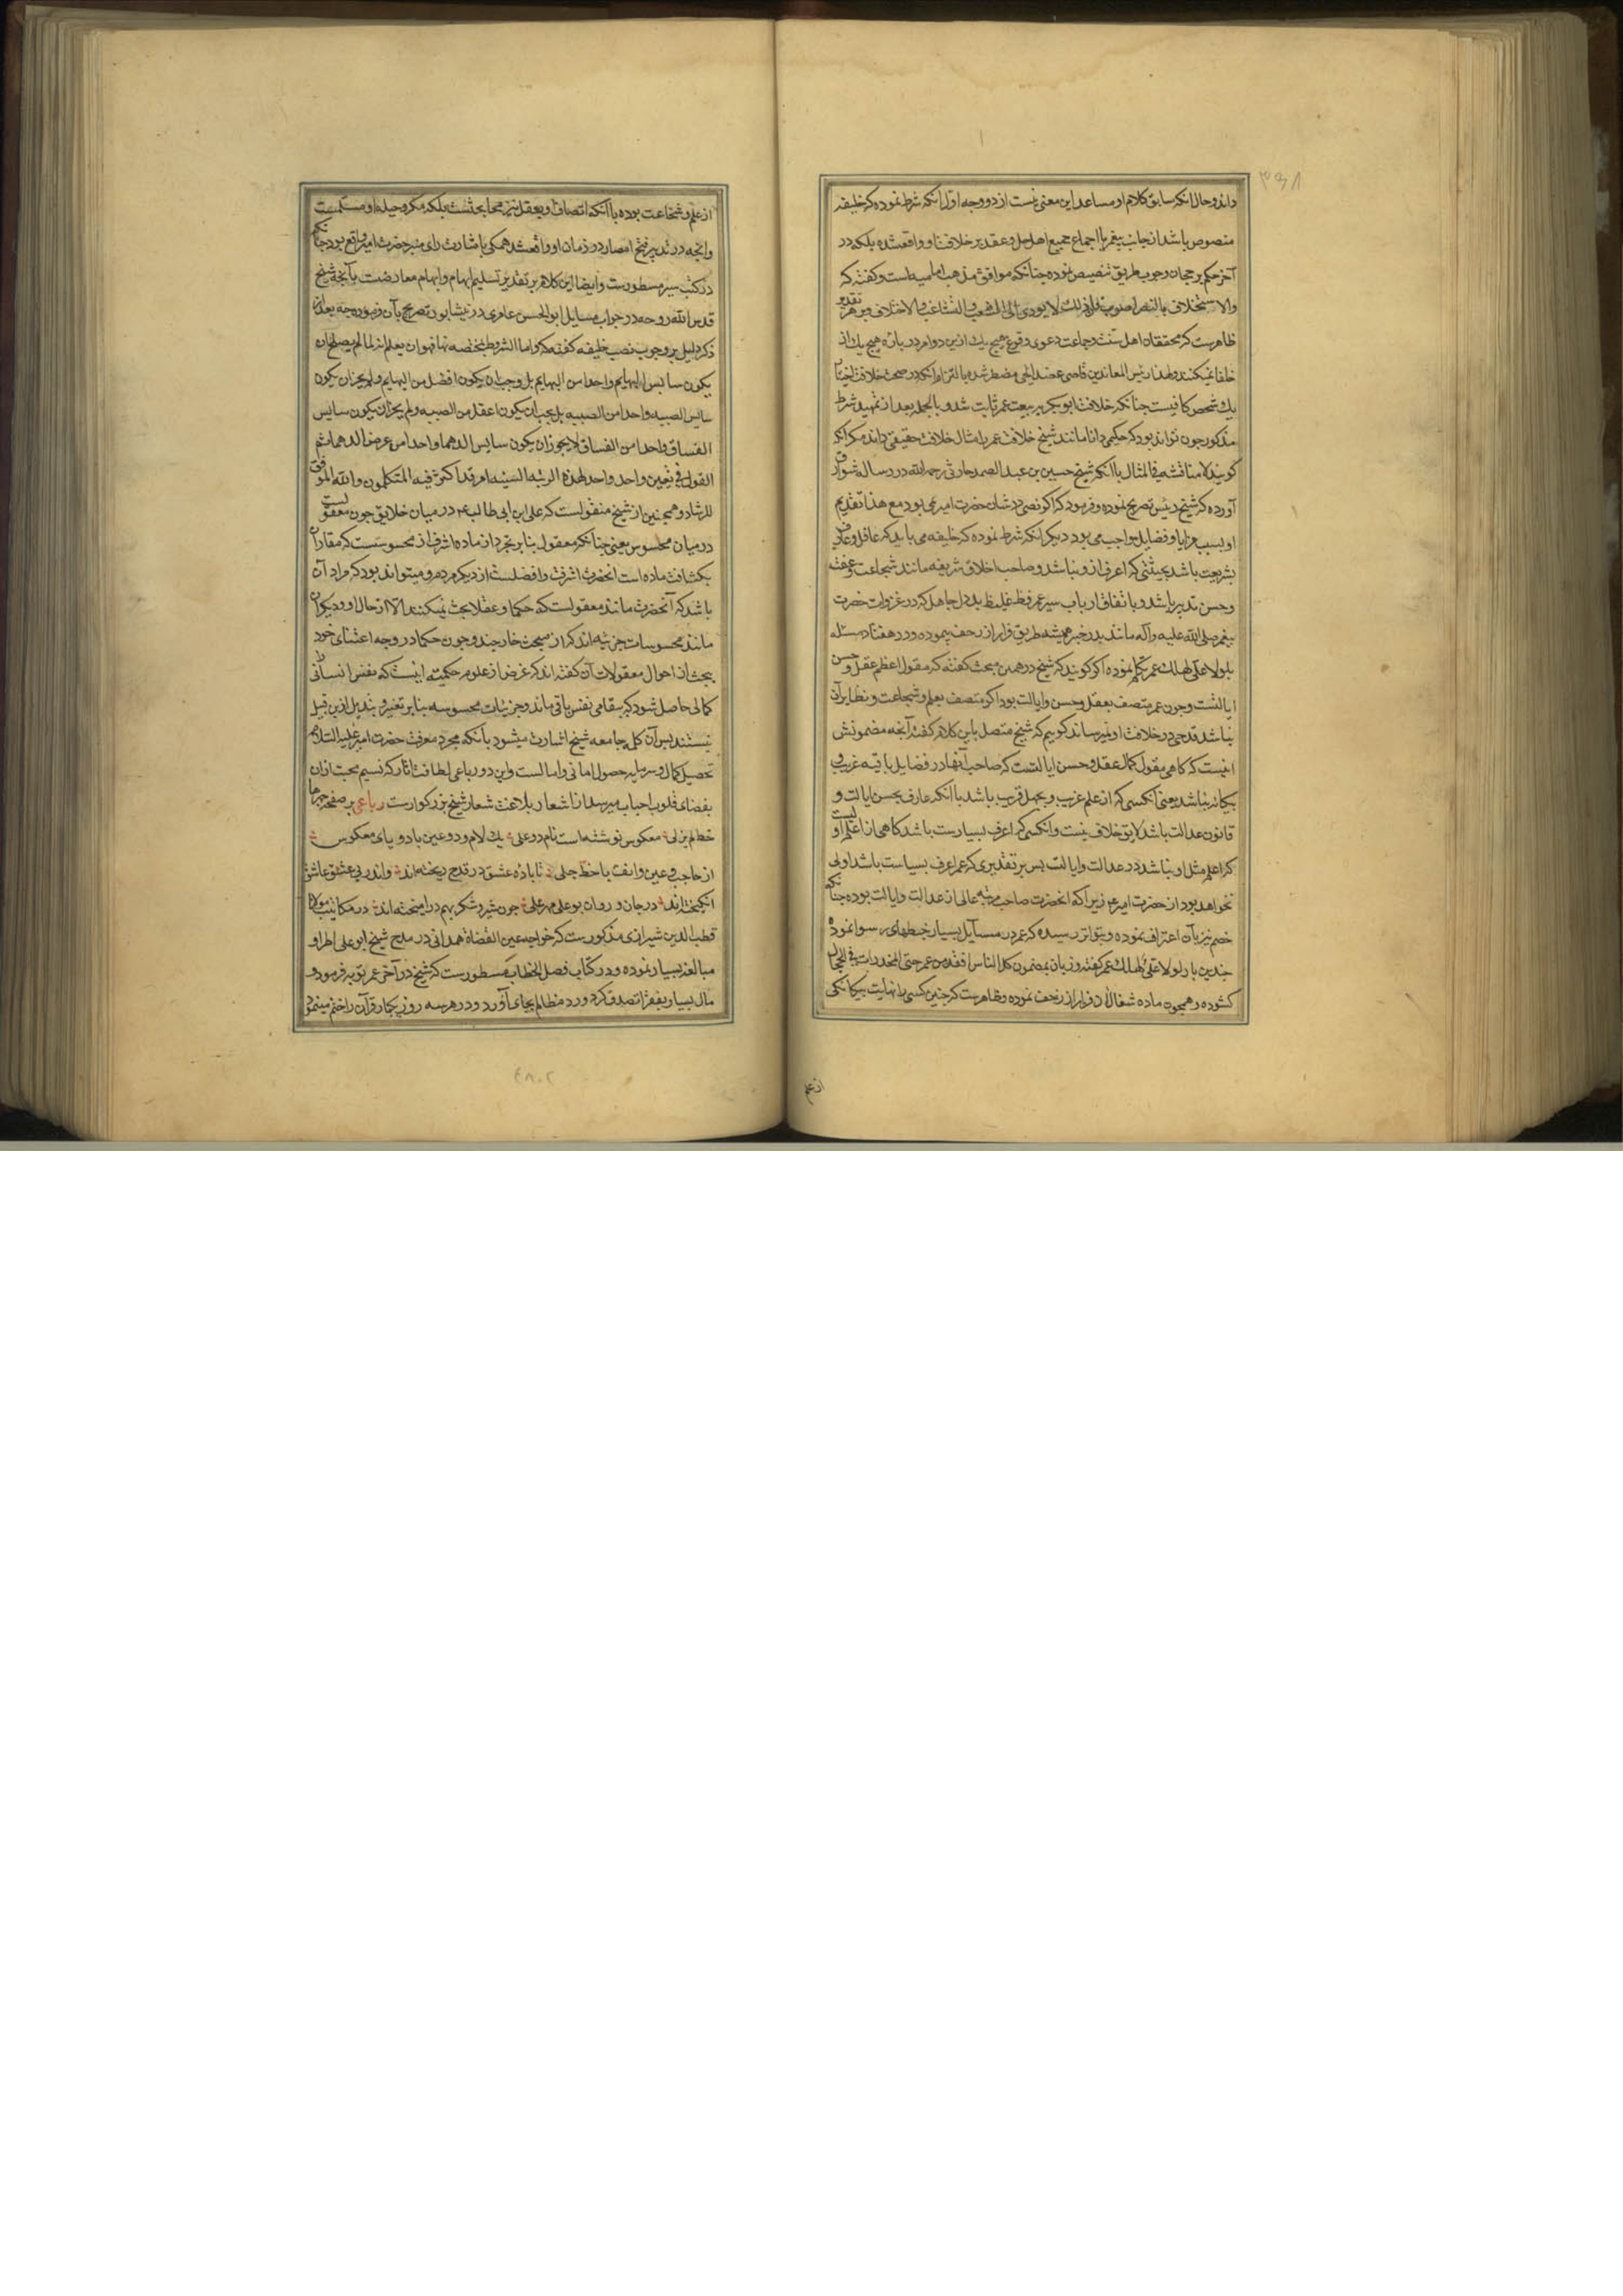 ۳۹۸
داند و حال آنکه سابق کلام او مساعد این معنی نیست از دو وجه اول آنکه شرط نموده که خلیفه
منصوص باشد از جانب پیغمبر یا اجماع جمیع اهل حل و عقد بر خلافت او واقع شده بلکه در
آخر حکم برجحان وجوب طریق تنصیص نموده چنانکه موافق مذهب امامیه است و گفته که
والاستخلاف بالنص اصوب فان ذلک لا یودی الی التشعب والتشاغب والاختلاف و بر هر تقدیر
ظاهرست که محققان اهل سنت و جماعت دعوی وقوع هیچ یک ازین دو امر در باره هیچ یک از
خلفا نمیکنند و لهذا رئیس المعاندین قاضی عضد ایجی مضطر شده بالتزام آنکه در صحت خلافت اختیار
یک شخص کافیست چنانکه خلافت ابو بکر ببیعت عمر ثابت شد و بالجمله بعد از تمهید شرط
مذکور چون تواند بود که حکیمی دانا مانند شیخ خلافت عمر را مثال خلافت حقیقی داند مگر آنکه
گویند لا مناقشه فی المثال با آنکه شیخ حسین بن عبد الصمد حارثی رحمه الله در رساله شوارق
آورده که شیخ رئیس تصریح نموده و فرمود که اگر نصی در شان حضرت امیر نمی بود مع هذا تقدیم
او بسبب مزایا و فضایل واجب می بود دیگر آنکه شرط نموده که خلیفه می باید که عاقل و عارف
بشریعت باشد بحیثتی که اعرف ازو نباشد و صاحب اخلاق شریفه مانند شجاعت و عفت
و حسن تدبیر باشد و باتفاق ارباب سیر عمر فظ غلیظ بد دل جاهل که در غزوات حضرت
پیغمبر صلی الله علیه و آله مانند بدر خیبر همیشه طریق فرار از زحف پیموده و در هفتاد مسئله
بلولا علی لهلک عمر تکلم نموده اگر گویند که شیخ در همین مبحث گفته که مقول اعظم عقل و حسن
ایالتست و چون عمر متصف بعقل و حسن و ایالت بود اگر متصف بعلم و شجاعت و نظایر آن
نباشد قدحی در خلافت او نمیرساند گوییم که شیخ متصل باین کلام گفته آنچه مضمونش
اینست که گاهی مقول کمال عقل و حسن ایالتست که صاحب آنها در فضایل باقیه غریب و
بیگانه نباشد یعنی آنکسی که از علم غریب و بجهل قریب باشد با آنکه عارف بحسن ایالت و
قانون عدالت باشد لایق خلافت نیست و آنکسی که اعرف بسیاست باشد گاهی از اعلم اولیست
که اعلم مثل او نباشد در عدالت و ایالت پس بر تقدیری که عمر اعرف بسیاست باشد اولی
نخواهد بود از حضرت امیر ع زیرا که آنحضرت صاحب مرتبه عالی از عدالت و ایالت بوده چنانکه
خصم نیز بآن اعتراف نموده و بتواتر رسیده که عمر در مسایل بسیار خبطهای رسوا نموده
چندین بار لولا علی لهلک عمر گفته و زبان بمضمون کل الناس افقه من عمر حتی المخدرات فی الحجال
گشوده و همچون ماده شغالان فرار از زحف نموده و ظاهرست که چنین کسی را نهایت بیگانگی
از علم
از علم و شجاعت بوده با آنکه اتصاف او بعقل نیز محل بحثست بلکه مکر و حیله او مسلمست
و آنچه در تدبیر فتح امصار در زمان او واقع شد همگی باشارت رای منیر حضرت امیر واقع بود چنانکه
در کتب سیر مسطورست و ایضا این کلام بر تقدیر تسلیم ابهام و ایهام معارضت بآنچه شیخ
قدس الله روحه در جواب مسایل ابو الحسن عامری در نیشابور تصریح بآن فرموده چه بعد از
ذکر دلیل بر وجوب نصب خلیفه گفته که و اما الشروط بشخصه نها فهو ان یعلم انه لما لم یصلح ان
یکون سایس البهایم واحدا من البهایم بل وجب ان یکون افضل من البهایم ولم یجز ان یکون
سایس الصبیه واحدا من الصبیه بل یجب ان یکون اعقل من الصبیه ولم یجز ان یکون سایس
الفساق واحدا من الفساق لا یجوز ان یکون سایس الدهما واحدا من عرض الدهما ثم
القول فی تعیین واحد واحد لهذه الرتبه السنیه امر قد اکثر فیه المتکلمون والله الموفق
للرشاد و همچنین از شیخ منقولست که علی ابن ابی طالب ع در میان خلایق چون معقولست
در میان محسوس یعنی چنانکه معقول بنا بر تجرد از ماده اشرف از محسوسست که مقارن
بکثافت ماده است آنحضرت اشرف و افضلست از دیگر مردم و میتواند بود که مراد آن
باشد که آنحضرت مانند معقولست که حکما و عقلا بحث نمیکنند الا از حال او و دیگران
مانند محسوسات جزئیه اند که از مبحث خارجند و چون حکما در وجه اعتنای خود
ببحث از احوال معقولات آن گفته اند که غرض از علوم حکمیه اینست که نفس انسانی را
کمالی حاصل شود که ببقای نفس باقی ماند و جزئیات محسوسه بنا بر تغیر و تبدیل ازین قبیل
نیستند پس آن کلمه جامعه شیخ اشارت میشود بآنکه مجرد معرفت حضرت امیر علیه السلام
تحصیل کمال و سرمایه حصول امانی و امالست و این دو رباعی لطافت اثار که نسیم محبت از آن
بفضای قلوب احباب میرسد از اشعار بلاغت شعار شیخ بزرگوارست رباعی بر صفحه چهرها
خط لم یزلی معکوس نوشته است نام دو علی یک لام و دو عین با دو یای معکوس
از حاجب و عین و انف با خط جلی تا باده عشق در قدح ریخته اند و اندر پی عشق عاشق
انگیخته اند در جان و روان بوعلی مهر علی چون شیر و شکر بهم در آمیخته اند در مکاتیب مولانا
قطب الدین شیرازی مذکورست که خواجه عین القضاة همدانی در مدح شیخ ابو علی اطرا و
مبالغه بسیار نموده و در کتاب فصل الخطاب مسطورست که شیخ در آخر عمر توبه فرمود و
مال بسیار بفقرا تصدق کرد و رد مظالم بجای آورد و در هر سه روز یکبار قرآن را ختم مینمود
۴۸۰۲